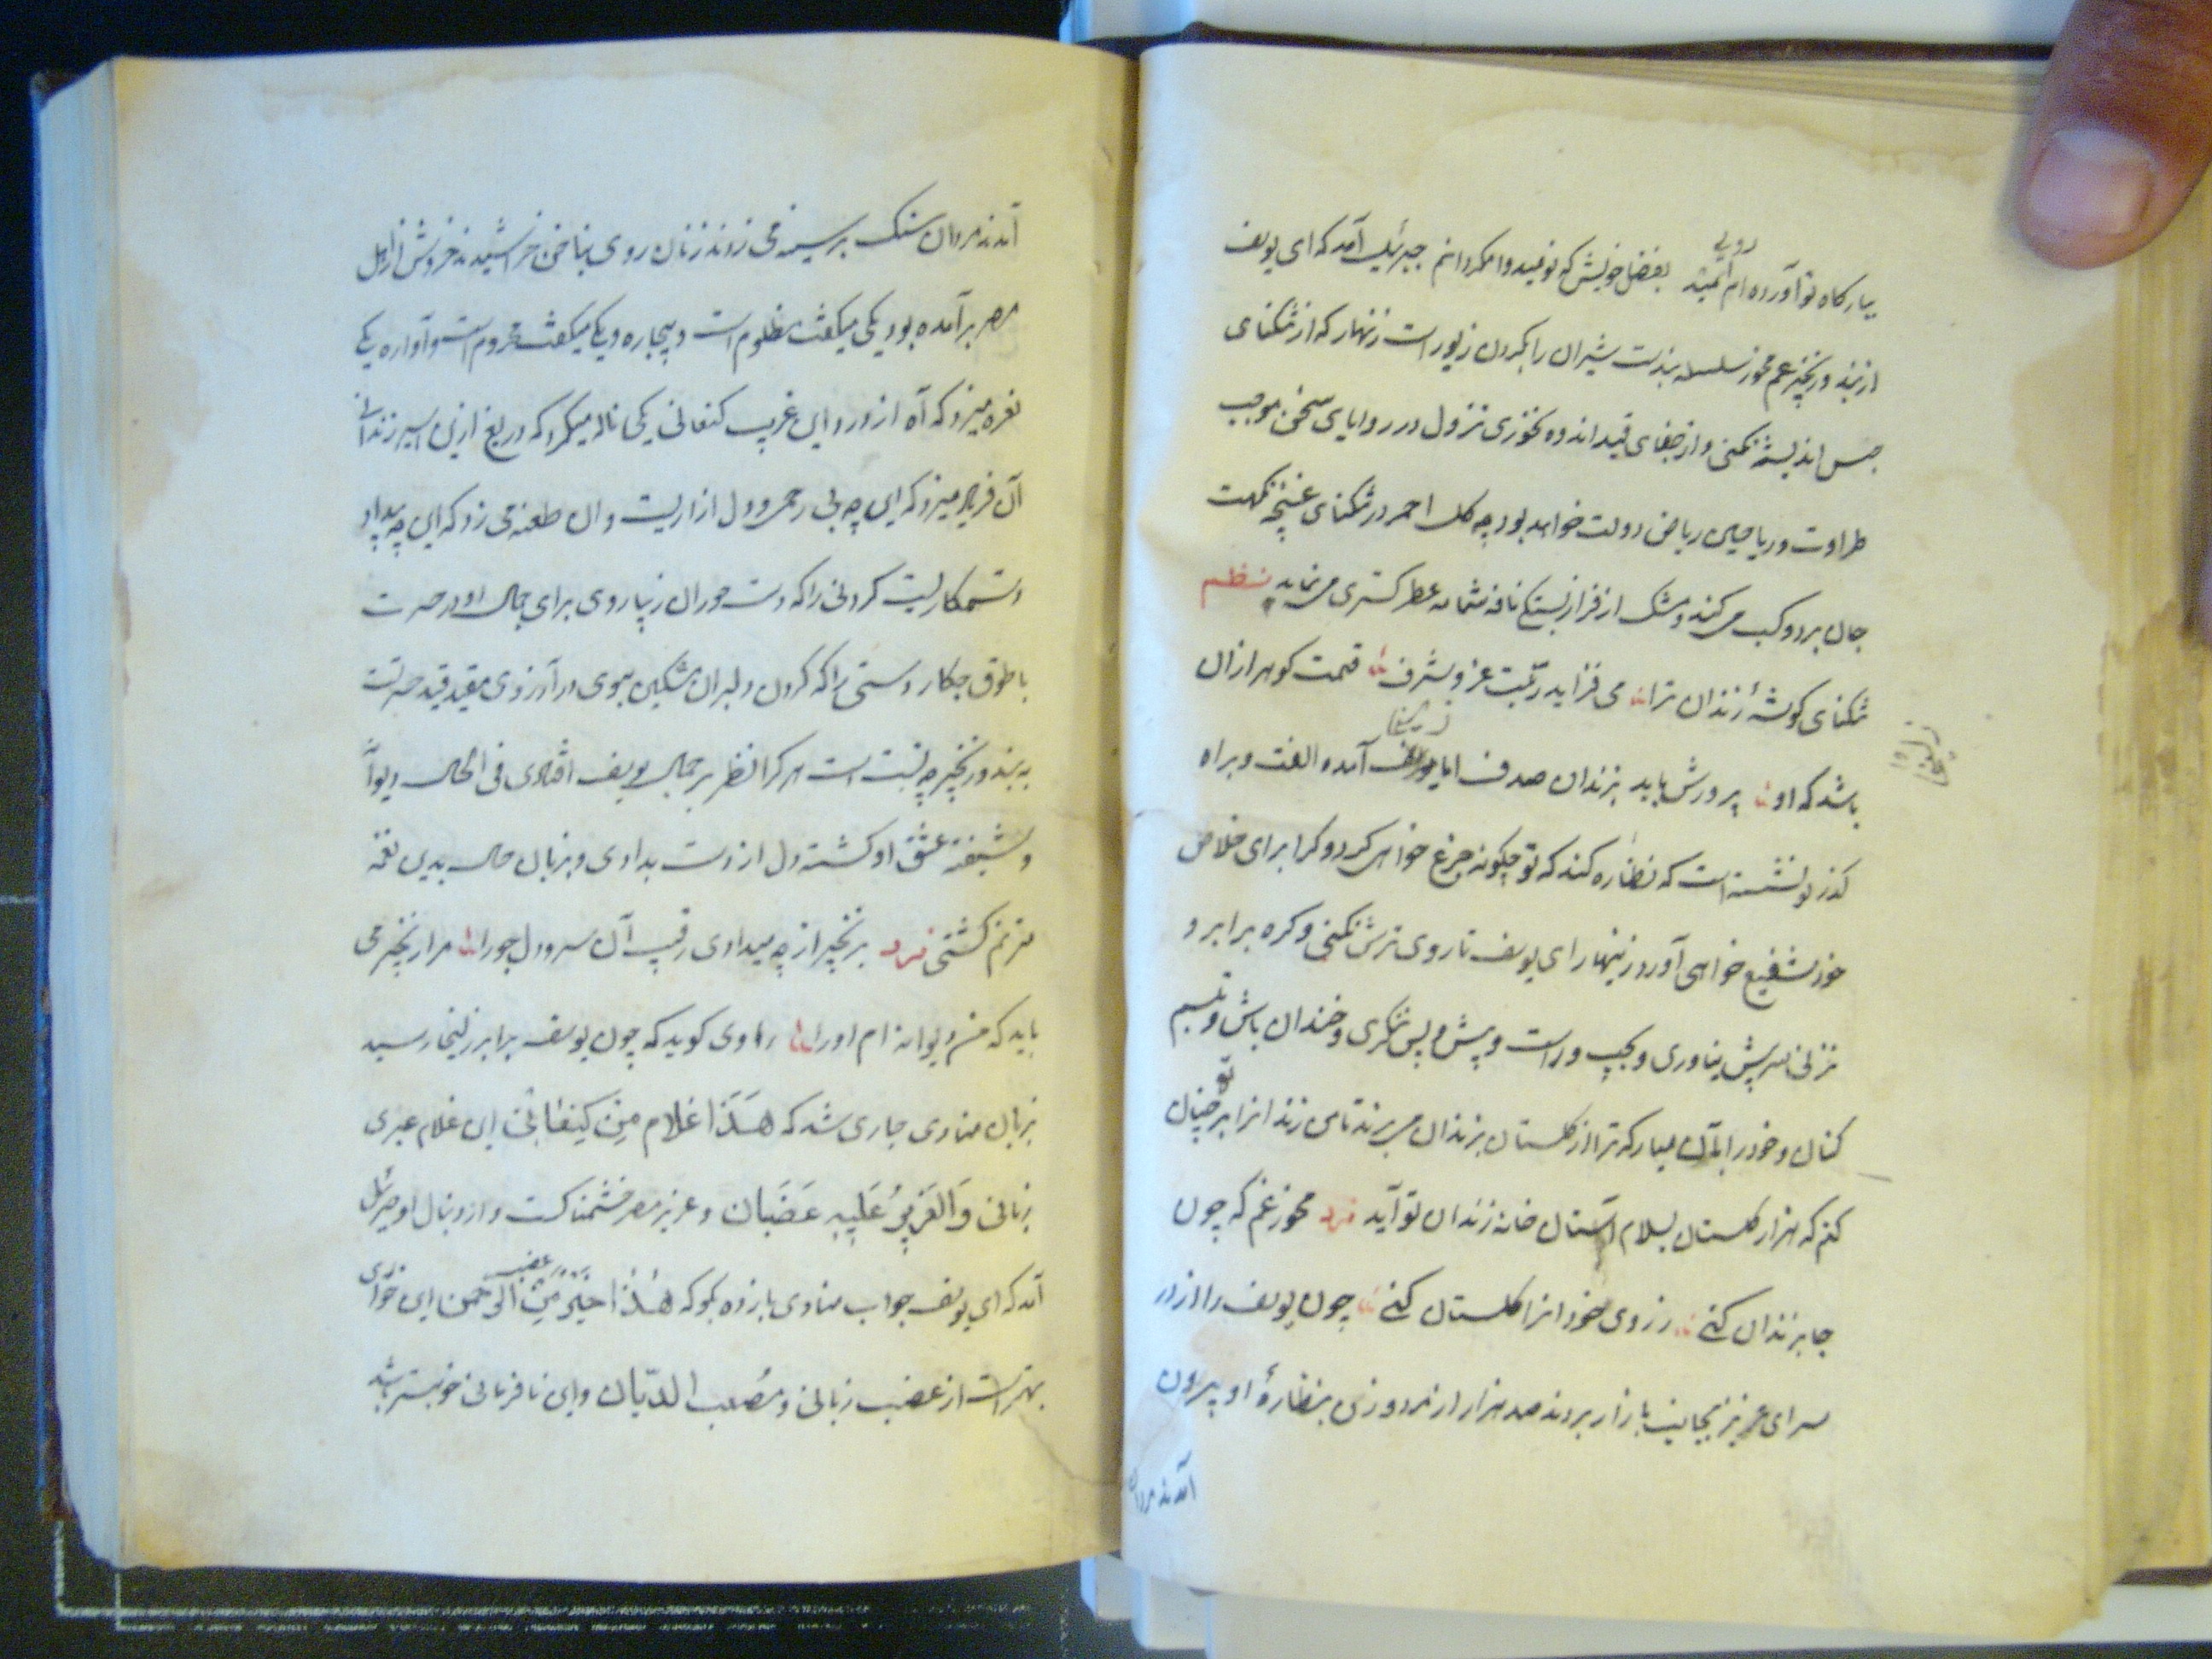 ببارگاه تو آورده ام امید رویی بفضل خویش که نومید وامگردانم جبرئیل آمد که ای یوسف
از بند و زنجیر غم مخور سلسله بندست شیران را بگردن زیورست زنهار که از تنگنای
حبس اندیشه نکنی و از جفای قید اندوه نخوری نزول در زوایای سجن موجب
طراوت و ریاحین ریاض دولت خواهد بود چه گل احمر در تنگنای غنچه نکهت
جان پرور کسب می کند و مشک از فراز بستگی نافه شمامه عطر گستری می نماید نظم
تنگنای گوشهٔ زندان ترا می فزاید رتبت عز و شرف قیمت گوهر ازان
باشد که او پرورش یابد بزندان صدف ایا یوسف آمده الفت و براه
گذر تو نشسته است که نظاره کند که تو چگونه جزع خواهی کرد و کرا برای خلاص
خود شفیع خواهی آورد زینهار ای یوسف تا روی ترش نکنی و گره بر ابرو
نزنی سر پیش نیاوری و بچپ و راست و پیش و پس ننگری و خندان باش و تبسم
کنان و خود را بدان میار که ترا از گلستان بزندان می برند تا من زندانرا بر تو چنان
کنم که هزار گلستان بسلام آستان خانه زندان تو آید فرد مخور غم که چون
جا بزندان کنی ز روی خود آنرا گلستان کنی چون یوسف را از در
سرای عزیز بجانب بازار بردند صد هزار از مرد و زن بنظارهٔ او بیرون
آمدند مردان
آمدند مردان سنگ بر سینه می زدند زنان روی بناخن خراشیدند خروش از اهل
مصر برآمده بود یکی میگفت مظلوم است و بیچاره و یکی میگفت محروم است و آواره یکی
نعره میزد که آه از درد این غریب کنعانی یکی ناله میکرد که دریغ ازین اسیر زندانی
آن فریاد میزد که این چه بی رحمی و دل آزاریست وان طعنه می زد که این چه بیداد
و ستمکاریست گردنی را که دست حوران زیبا روی برای جمال او در حسرت
با طوق چکار دستی را که گردن دلبران مشکین موی در آرزوی مقید قید حسرتست
به بند و زنجیر چه نسبت است هر کرا نظر بر جمال یوسف افتادی فی الحال دیوانه
و شیفته عشق او گشته دل از دست بدادی و بزبان حال بدین نغمه
مترنم گشتی فرد بزنجیر از چه میداری رقیب آن سرو دلجو را مرا زنجیر می
باید که من دیوانه ام او را راوی گوید که چون یوسف برابر زلیخا رسید
بزبان منادی جاری شد که هَذَا غلام مِن کِنعَانَ این غلام عبری
زبانی وَالعَزیزُ عَلَیهِ غَضبَان و عزیز مصر خشمناکست و از دنبال او جبرئیل
آمد که ای یوسف جواب منادی باز ده بگو که هٰذَا خَیر مِن غضب الرحمن این خواری
بهترست از غضب ربانی و مصعب الدیان و این نافرمانی خوبتر باشد